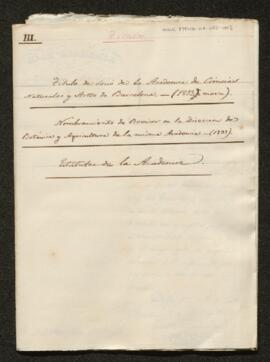 III.
Título de socio de la Academia de Ciencias
Naturales y Artes de Barcelona — (1833, marzo).
Nombramiento de Revisor en la Direccion de
Botánica y Agricultura de la misma Academia — (1837).
Estatutos de la Academia.